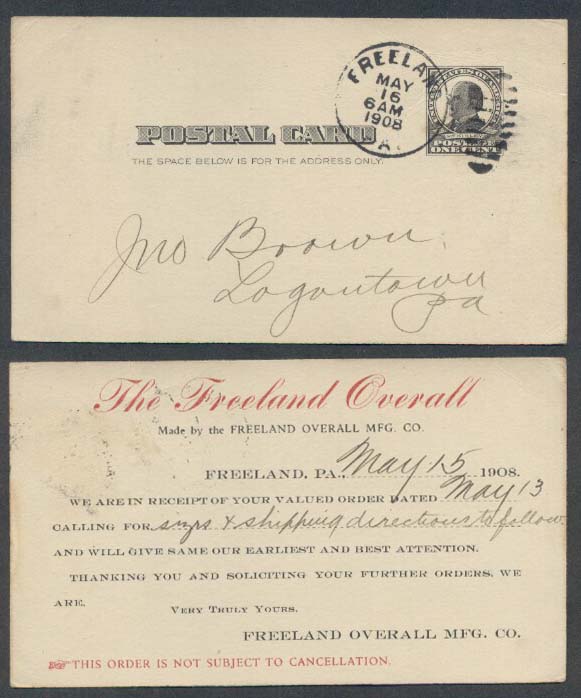 FREELAN
MAY
16
6 AM
1908
POSTAL CARD
THE SPACE BELOW IS FOR THE ADDRESS ONLY.
POSTAGE
ONE CENT
Jno Brown,
Logantown
Pa
The Freeland Overall
Made by the FREELAND OVERALL MFG. CO.
FREELAND, PA., May 15 1908.
WE ARE IN RECEIPT OF YOUR VALUED ORDER DATED May 13
CALLING FOR & shipping directions to follow
AND WILL GIVE SAME OUR EARLIEST AND BEST ATTENTION.
THANKING YOU AND SOLICITING YOUR FURTHER ORDERS, WE
ARE. VERY TRULY YOURS,
FREELAND OVERALL MFG. CO.
THIS ORDER IS NOT SUBJECT TO CANCELLATION.